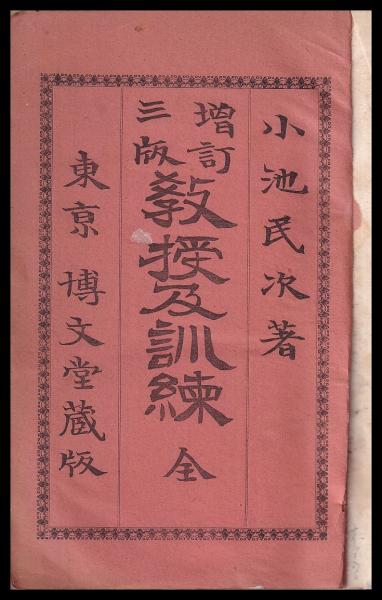 小池民次著
增訂
三版
教授及訓練 全
東京 博文堂蔵版